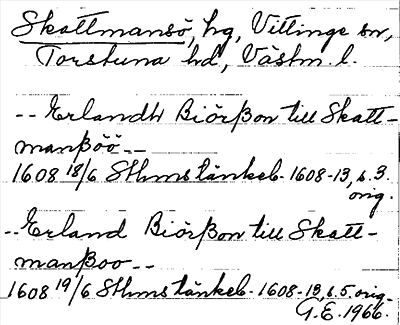 Skattmansö, hg, Vittinge sn,
Torstuna hd, Västm. l.
-- Erlandh Biörßon till Skatt-
manßöö --
1608 18/6 Sthms tänkeb. 1608-13, s. 3.
orig.
-- Erland Biörßon till Skatt-
manßoo --
1608 19/6 Sthms tänkeb. 1608-13, s. 5. orig.
G.E. 1966.